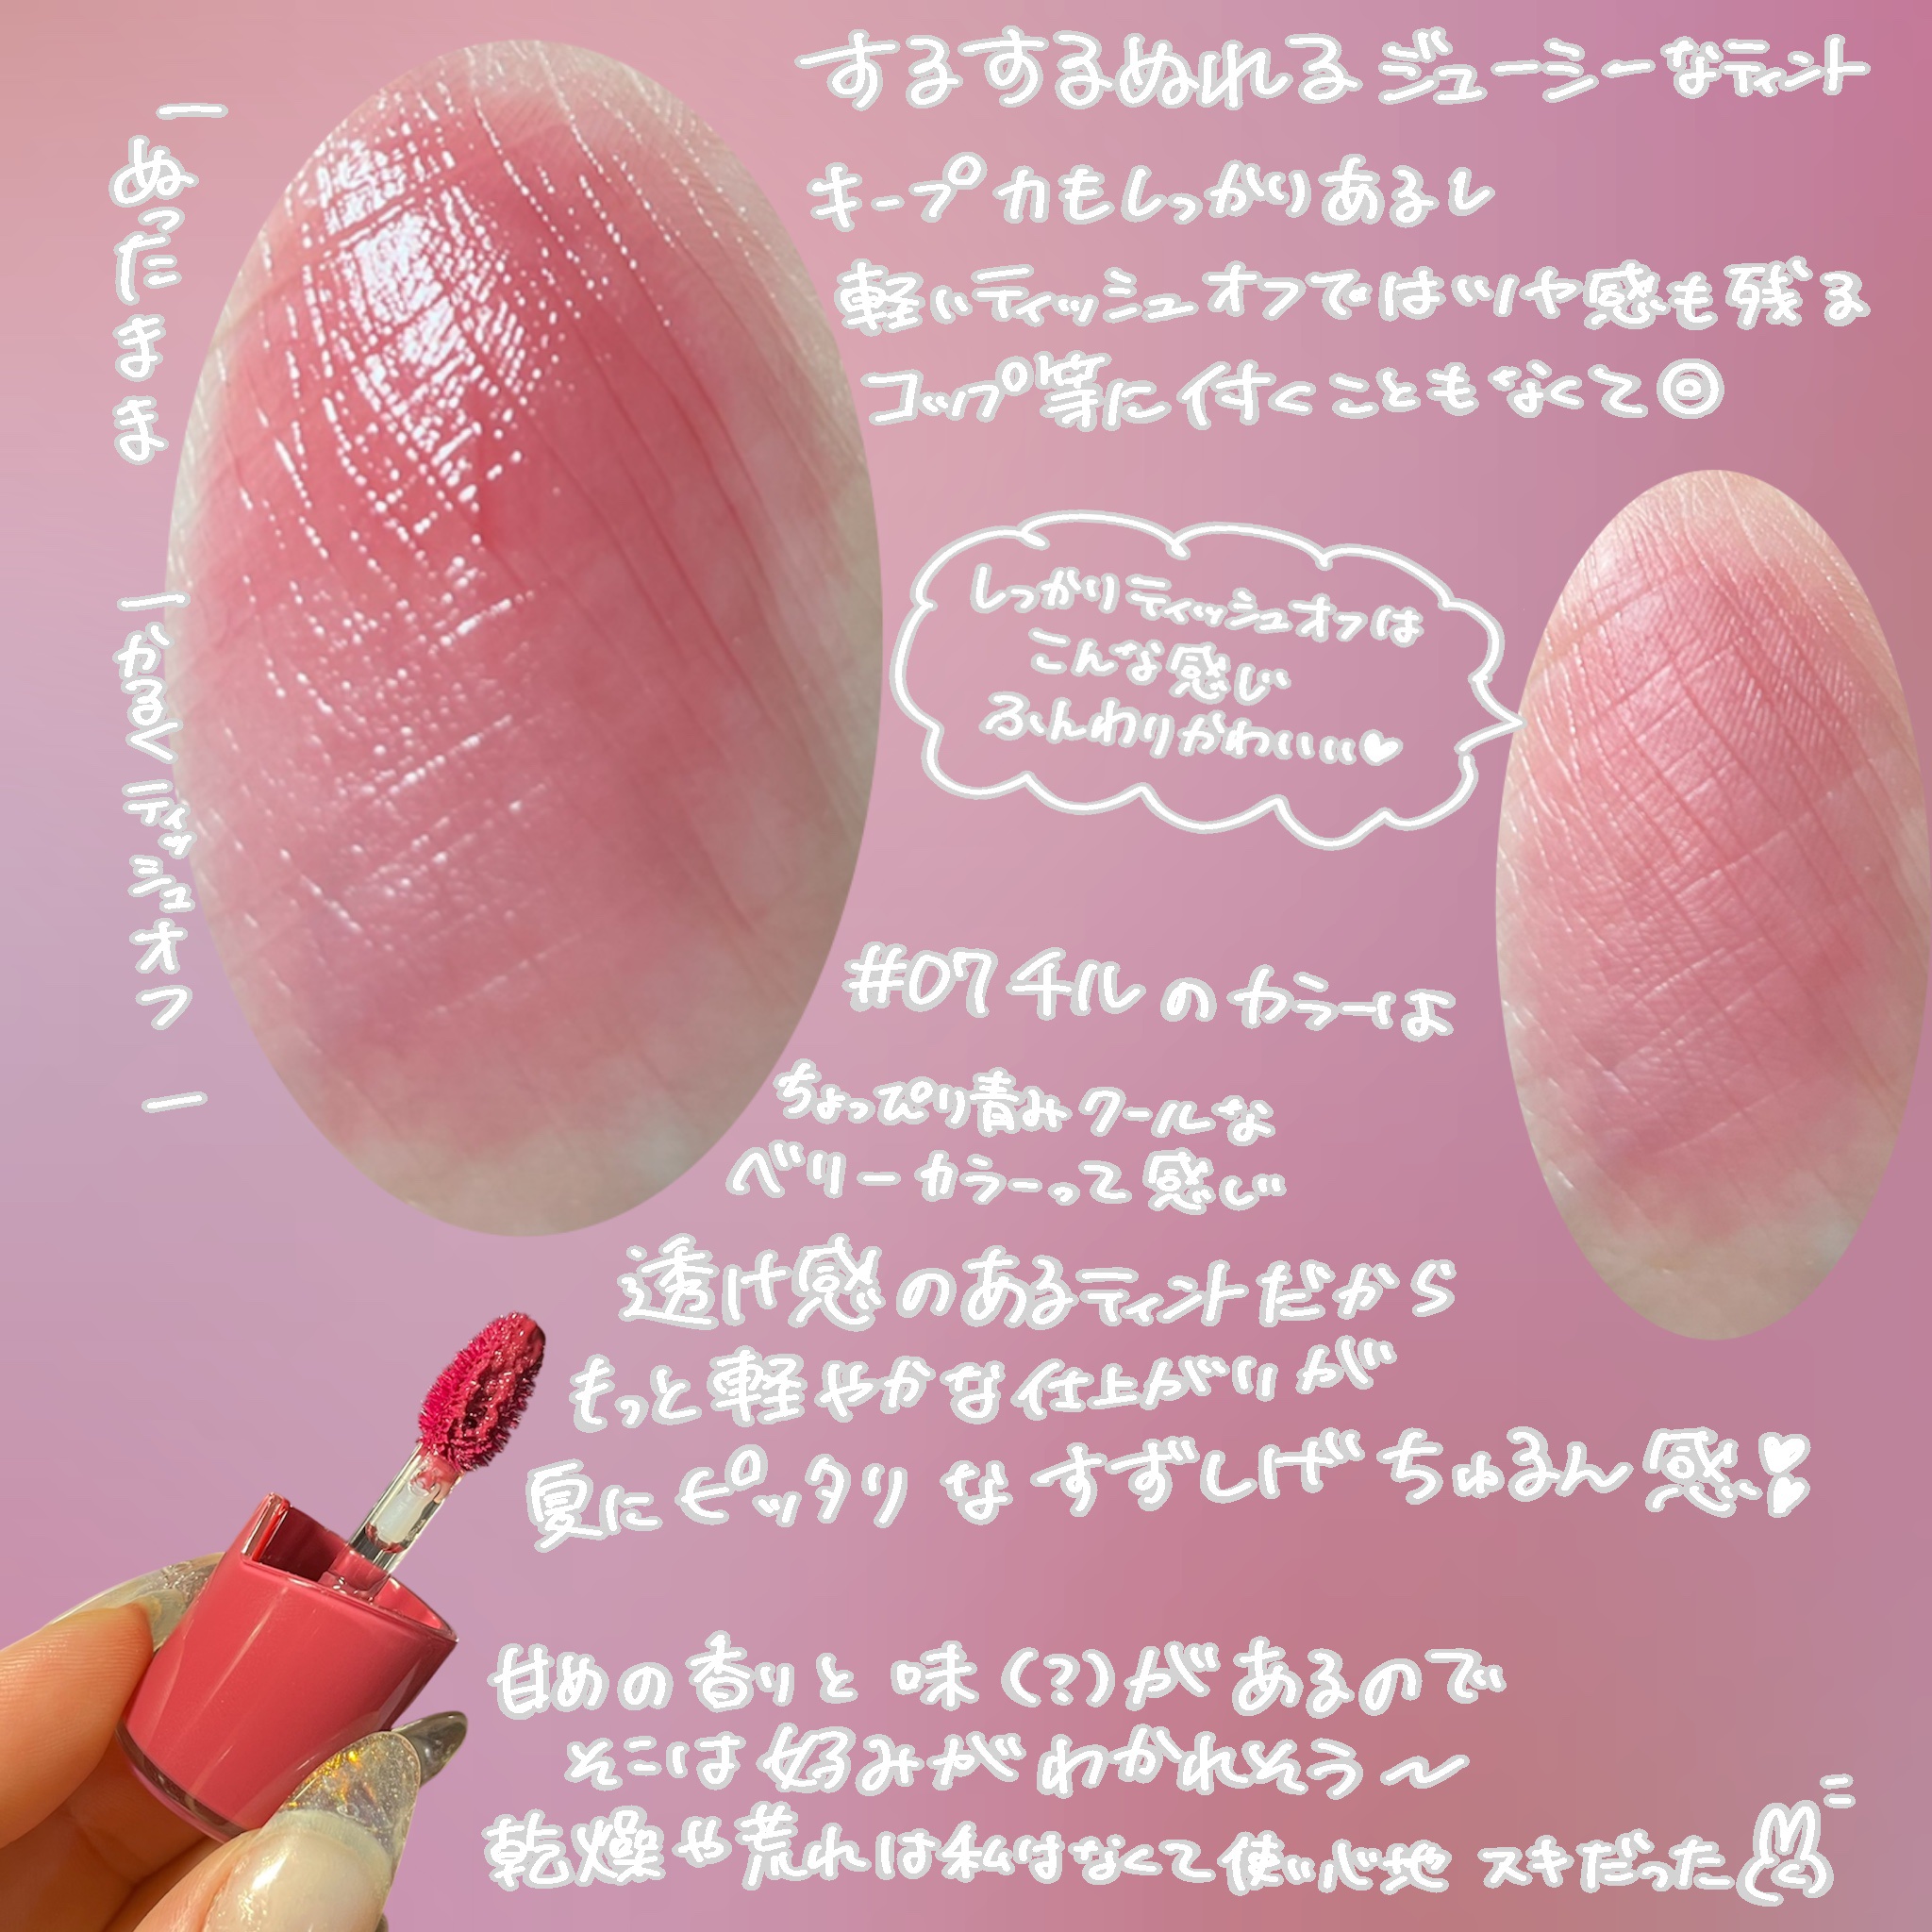 するするぬれるジューシーなティント
キープ力もしっかりあるし
軽いティッシュオフではツヤ感も残る
コップ等に付くこともなくて◎
ぬったまま
かるくティッシュオフ
しっかりティッシュオフは
こんな感じ
ふんわりかわいい♥
#07チルのカラーは
ちょっぴり青みクールな
ベリーカラーって感じ
透け感のあるティントだから
もっと軽やかな仕上がりが
夏にピッタリなすずしげちゅるん感
甘めの香りと味(?)があるので
そこは好みがわかれそう〜
乾燥や荒れは私はなくて使い心地スキだった